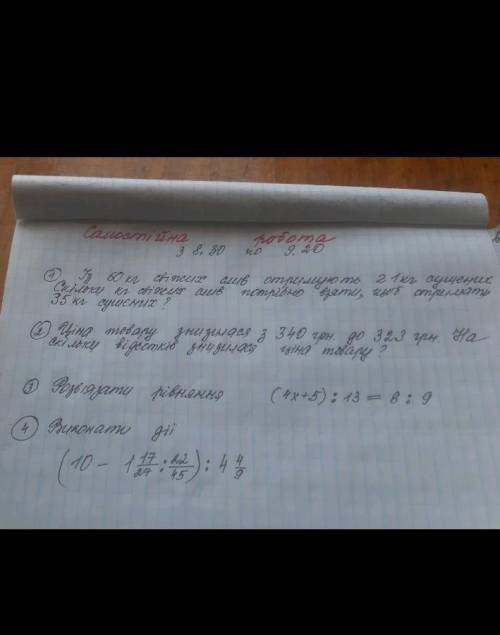 Самостійна робота
з 8.30 по 9.20
① Із 60 кг свіжих слив отримують 21 кг сушених
Скільки кг свіжих слив потрібно взяти, щоб отримати
35 кг сушених?
② Ціна товару знизилася з 340 грн. до 323 грн. На
скільки відсотків знизилася ціна товару?
③ Розв'язати рівняння (4x+5) : 13 = 8 : 9
④ Виконати дії
(10 - 1 17/27 : 22/45) : 4 4/9